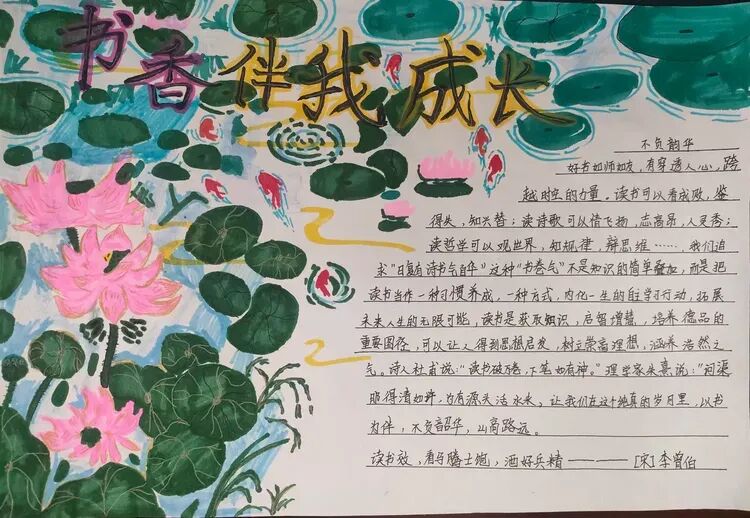 书香伴我成长
不负韵华
好书如师如友，有穿透人心，跨
越时空的力量。读书可以看成败，鉴
得失，知兴替；读诗歌可以情飞扬，志高昂，人灵秀；
读哲学可以观世界，知规律，辩思维……，我们追
求"腹有诗书气自华"这种"书卷气"不是知识的简单叠加，而是把
读书当作一种习惯养成，一种方式，内化一生的自主学习行动，拓展
未来人生的无限可能，读书是获取知识，启智增慧，培养德品的
重要图径，可以让人得到思想启发，树立崇高理想，涵养浩然之
气。诗人杜甫说："读书破万卷，下笔如有神。"理学家朱熹说："问渠
那得清如许，为有源头活水来。让我们在这个纯真的岁月里，以书
为伴，不负韶华，山高路远。
读书效，看马腾士饱，酒好兵精————[宋]李曾伯